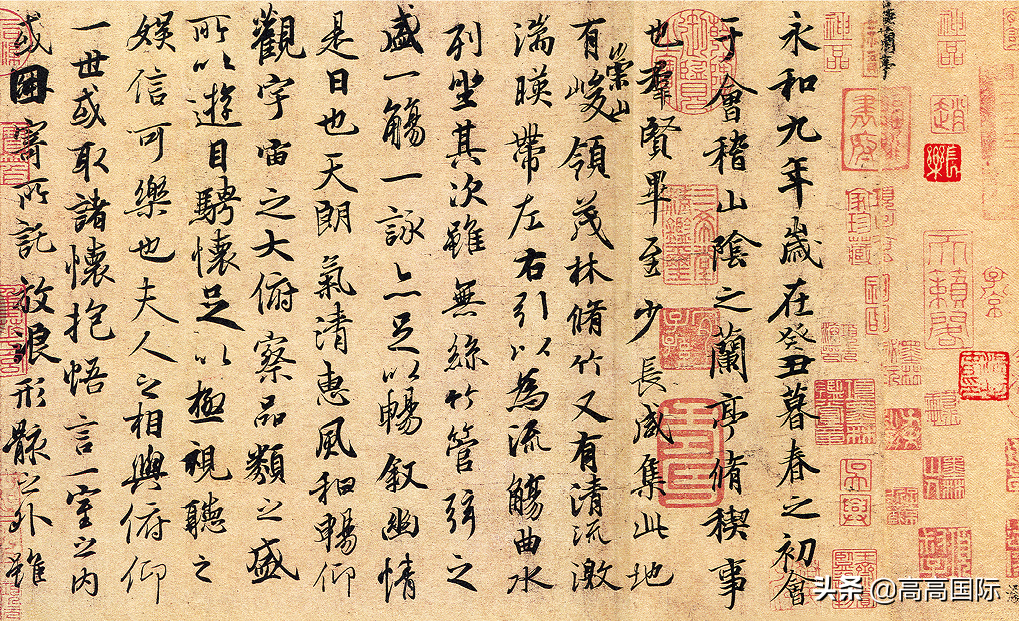 神品
長樂
神品
永和九年歲在癸丑暮春之初會
于會稽山陰之蘭亭脩稧事
也羣賢畢至少長咸集此地
有崇山峻領茂林脩竹又有清流激
湍暎帶左右引以為流觴曲水
列坐其次雖無絲竹管弦之
盛一觴一詠亦足以暢敘幽情
是日也天朗氣清惠風和暢仰
觀宇宙之大俯察品類之盛
所以遊目騁懷足以極視聽之
娛信可樂也夫人之相與俯仰
一世或取諸懷抱悟言一室之內
或因寄所託放浪形骸之外雖
头条 @高高国际